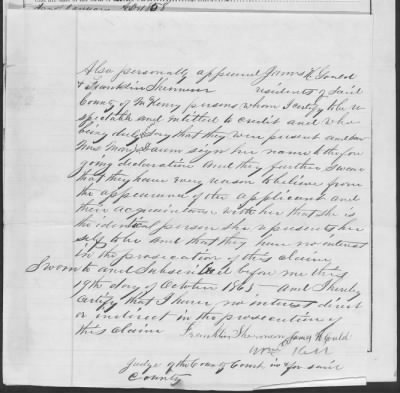 Also personally appeared James H. Gould
& Franklin Sherman residents of said
County of McHenry persons whom I certify to be re
spectable and intitled to credit and who
being duly say that they were present and saw
Mrs Mary sign her name to the fore
going declaration and they further swear
that they have every reason to believe from
the appearance of the applicant and
their acquaintance with her that she is
the identical person she represents her
self to be and that they have no interest
in the prosecution of this claim
Sworn to and Subscribed before me this
19th day of October 1865 - and I hereby
certify that I have no interest direct
or indirect in the prosecution of
this claim Franklin Sherman James H Gould
Wm Kerr
Judge of the County Court in & for said
County